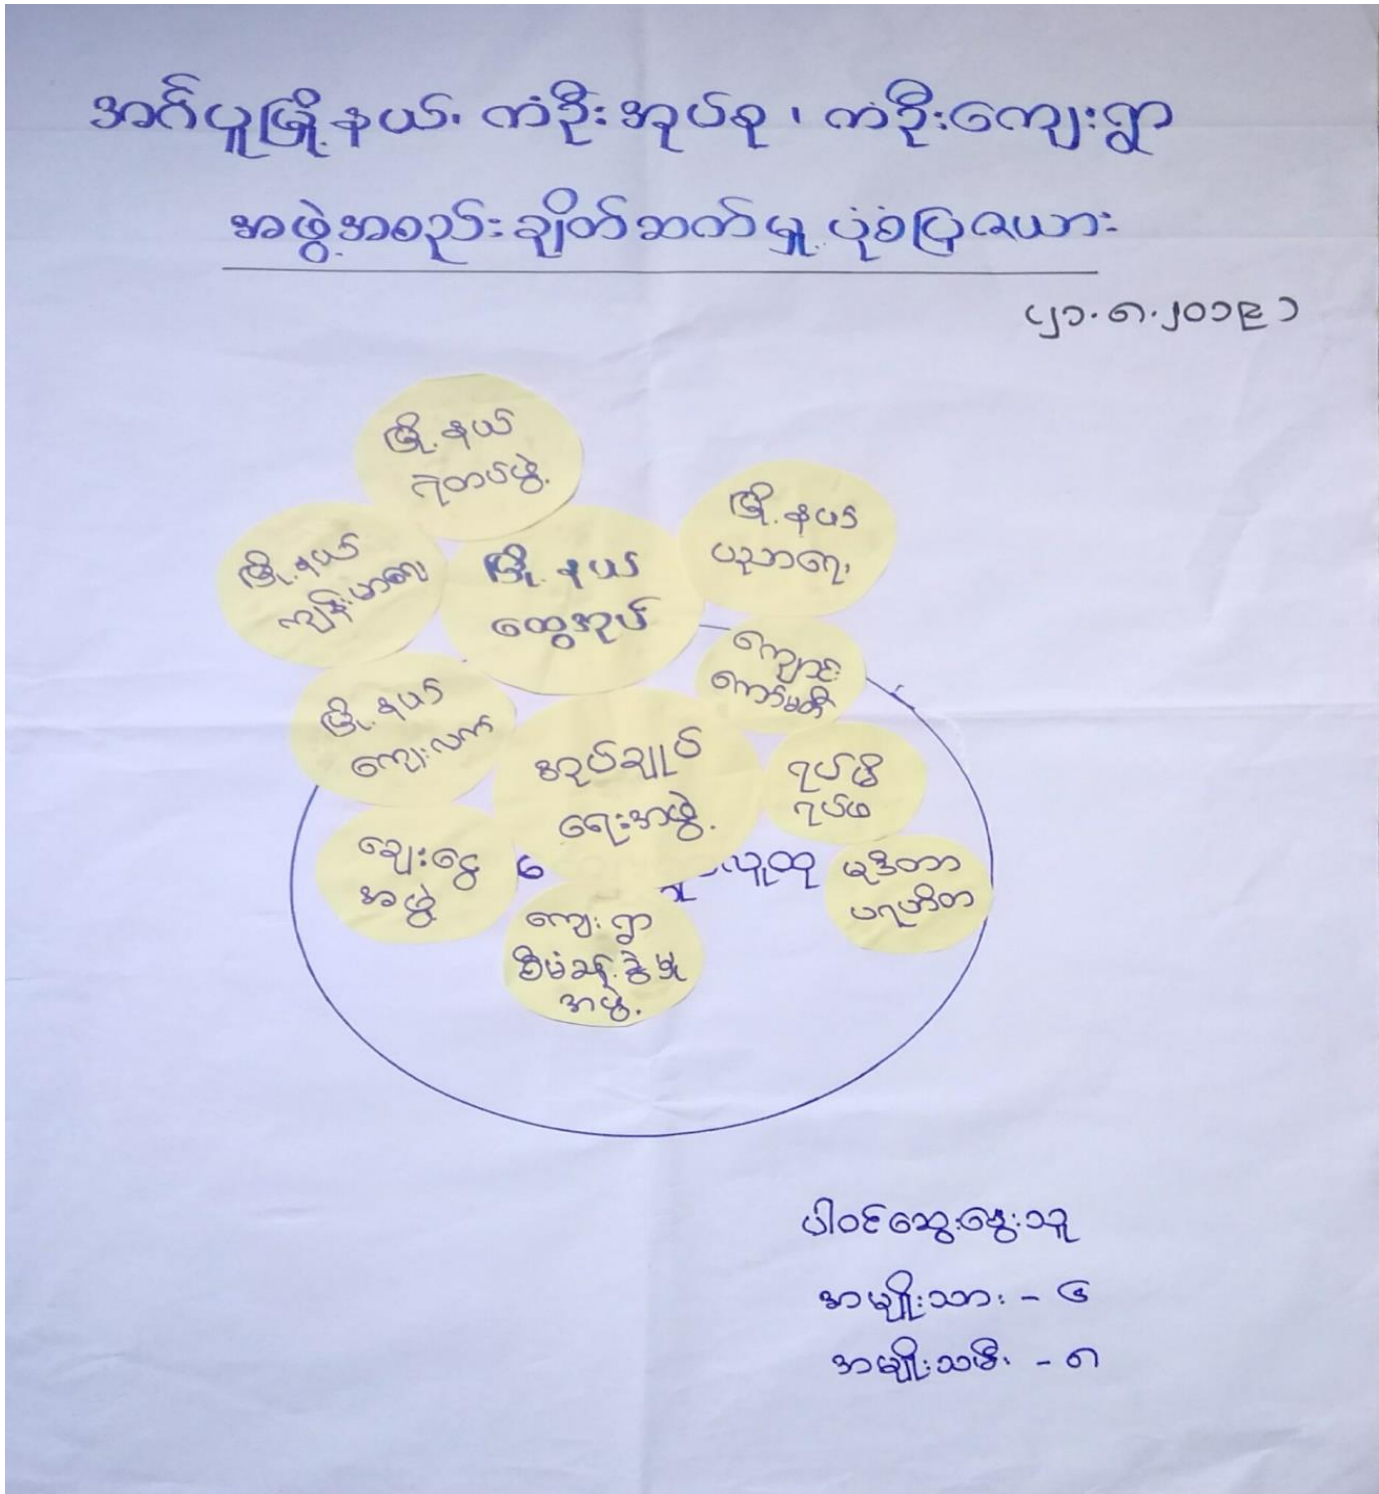 အင်ပူမြို့နယ်၊ ကံဦးအုပ်စု၊ ကံဦးကျေးရွာ
အဖွဲ့အစည်းချိတ်ဆက်မှု ပုံစံပြဇယား
(၂၁.၈.၂၀၁၉)
မြို့နယ်
ရဲတပ်ဖွဲ့
မြို့နယ်
ပညာရေး
မြို့နယ်
ကျန်းမာရေး
မြို့နယ်
ထွေအုပ်
ကျောင်း
ကော်မတီ
မြို့နယ်
ကျေးလက်
အုပ်ချုပ်
ရေးအဖွဲ့
ရပ်မိ
ရပ်ဖ
ချေးငွေ
အဖွဲ့
လူထု
မုဒိတာ
ပရဟိတ
ကျေးရွာ
စီမံခန့်ခွဲမှု
အဖွဲ့
ပါဝင်ဆွေးနွေးသူ
အမျိုးသား - ၆
အမျိုးသမီး - ၈